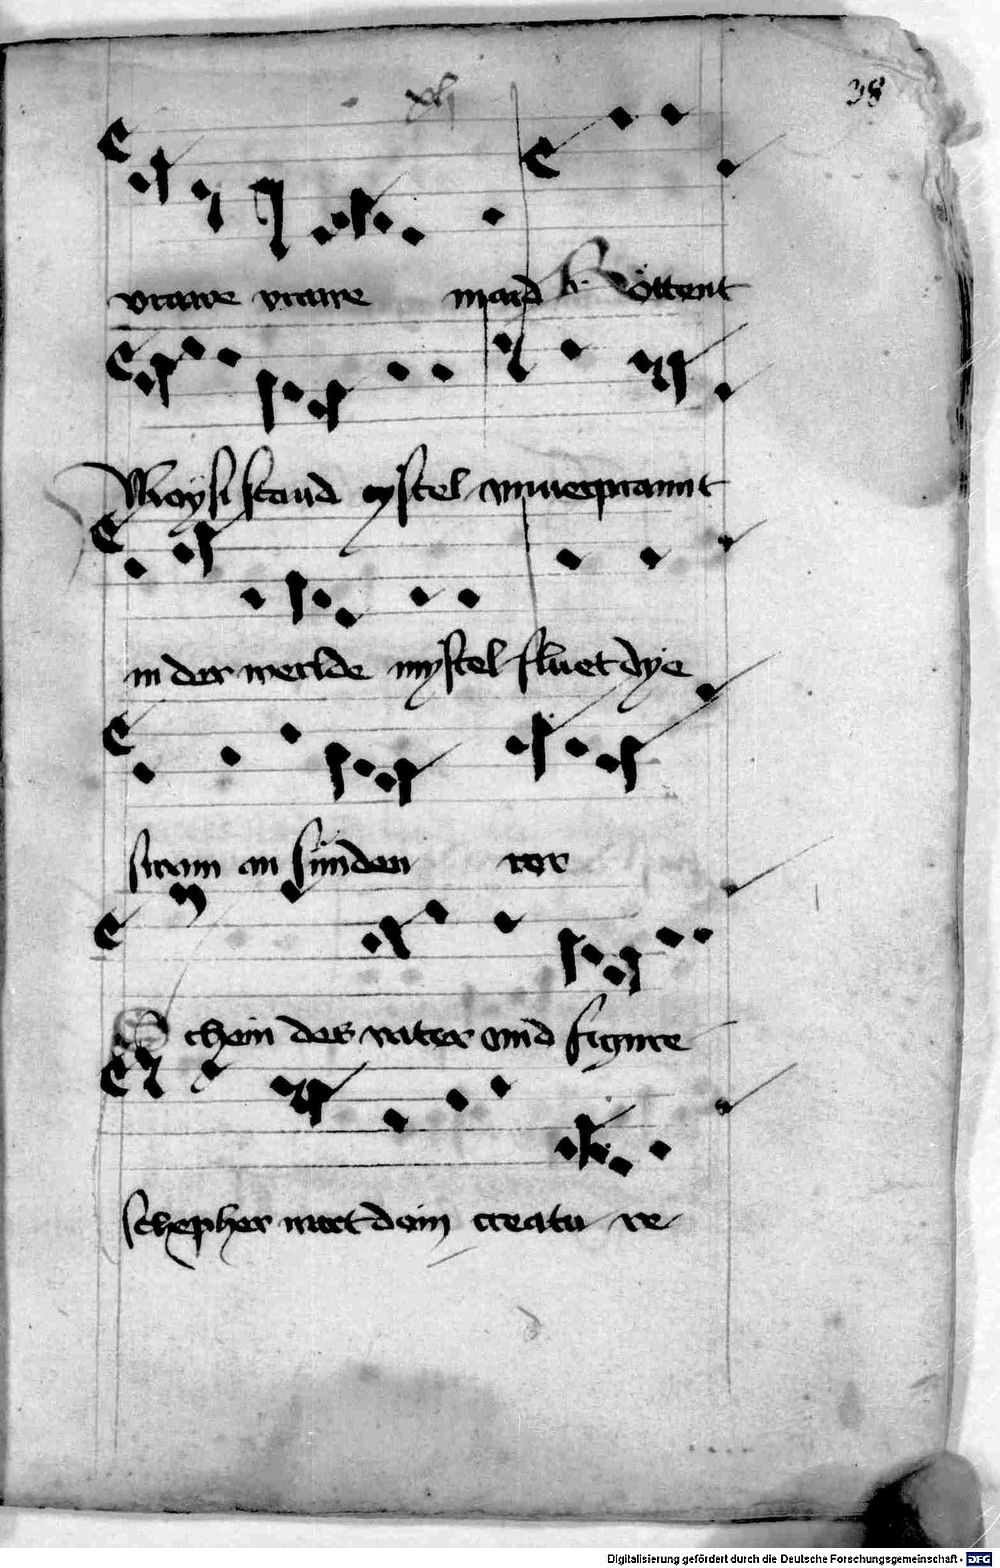 xlj
38
vrawe vrawe mard R. Röttent
Moysi stavd ystel vnuerprannt
in der werlde mystel fluet dye
stram an sünden ror
Schein des vater vnd figure
schepher wart dein creatu re
Digitalisierung gefördert durch die Deutsche Forschungsgemeinschaft - DFG